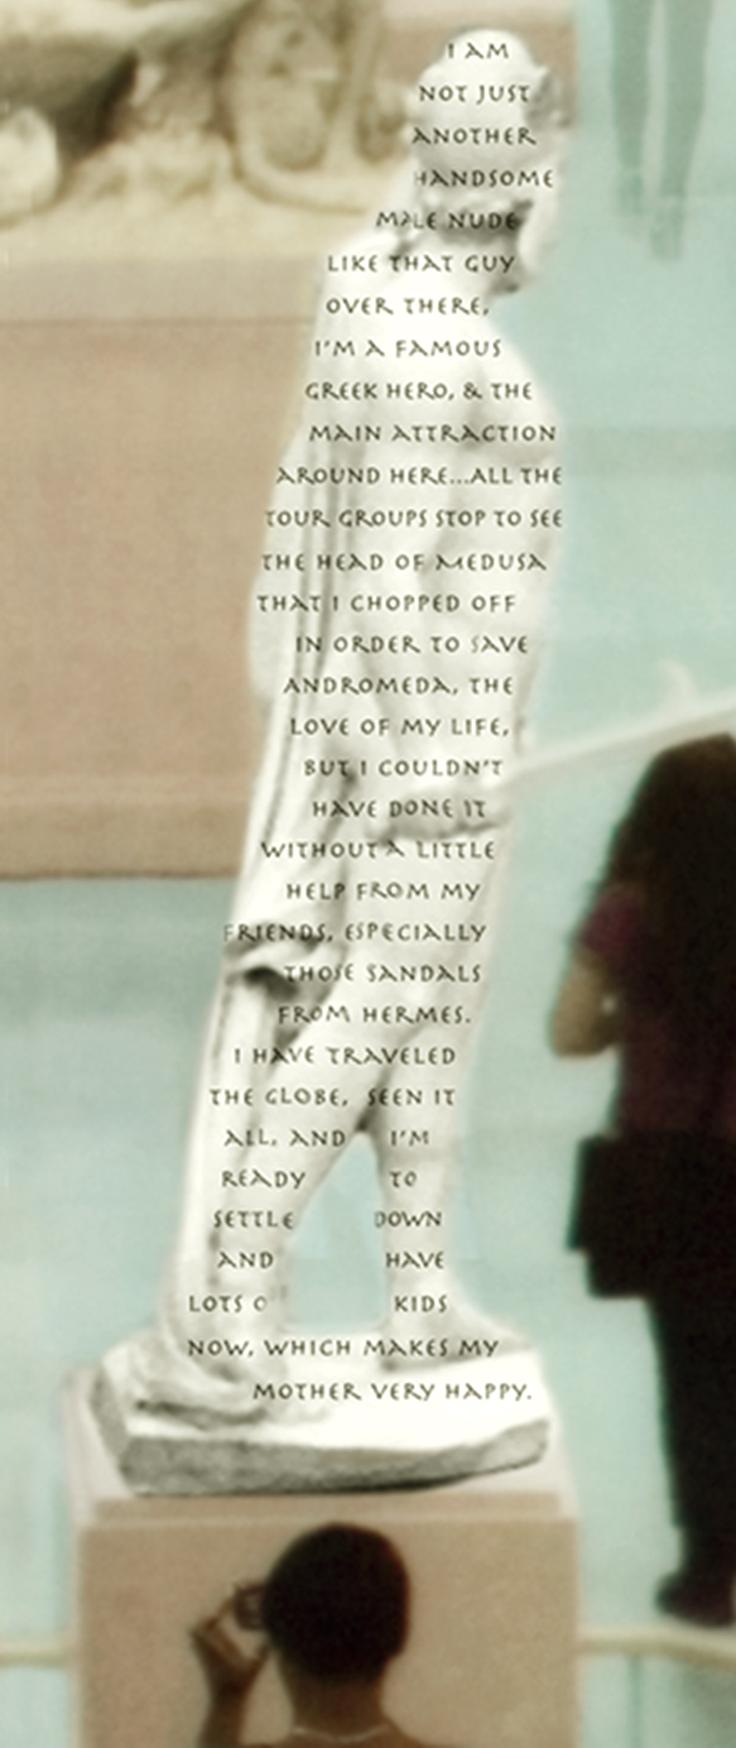 I AM
NOT JUST
ANOTHER
HANDSOME
MALE NUDE
LIKE THAT GUY
OVER THERE,
I'M A FAMOUS
GREEK HERO, & THE
MAIN ATTRACTION
AROUND HERE...ALL THE
TOUR GROUPS STOP TO SEE
THE HEAD OF MEDUSA
THAT I CHOPPED OFF
IN ORDER TO SAVE
ANDROMEDA, THE
LOVE OF MY LIFE,
BUT I COULDN'T
HAVE DONE IT
WITHOUT A LITTLE
HELP FROM MY
FRIENDS, ESPECIALLY
THOSE SANDALS
FROM HERMES.
I HAVE TRAVELED
THE GLOBE, SEEN IT
ALL, AND I'M
READY TO
SETTLE DOWN
AND HAVE
LOTS O KIDS
NOW, WHICH MAKES MY
MOTHER VERY HAPPY.